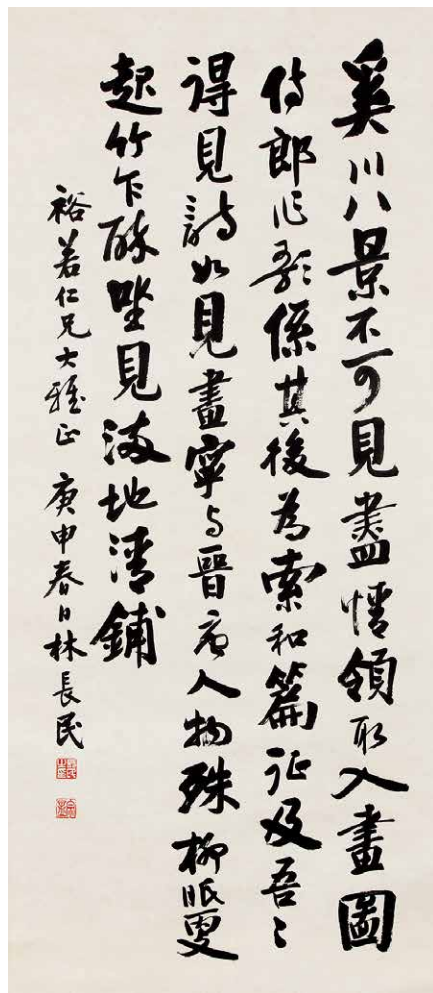 奚川八景不可見盡情領取入畫圖
侍郎作歌係其後為索和篇征及吾〻
得見詩如見畫寧与晉唐人物殊柳眠更
起竹乍見地清鋪
裕若仁兄大雅正 庚申春日林長民